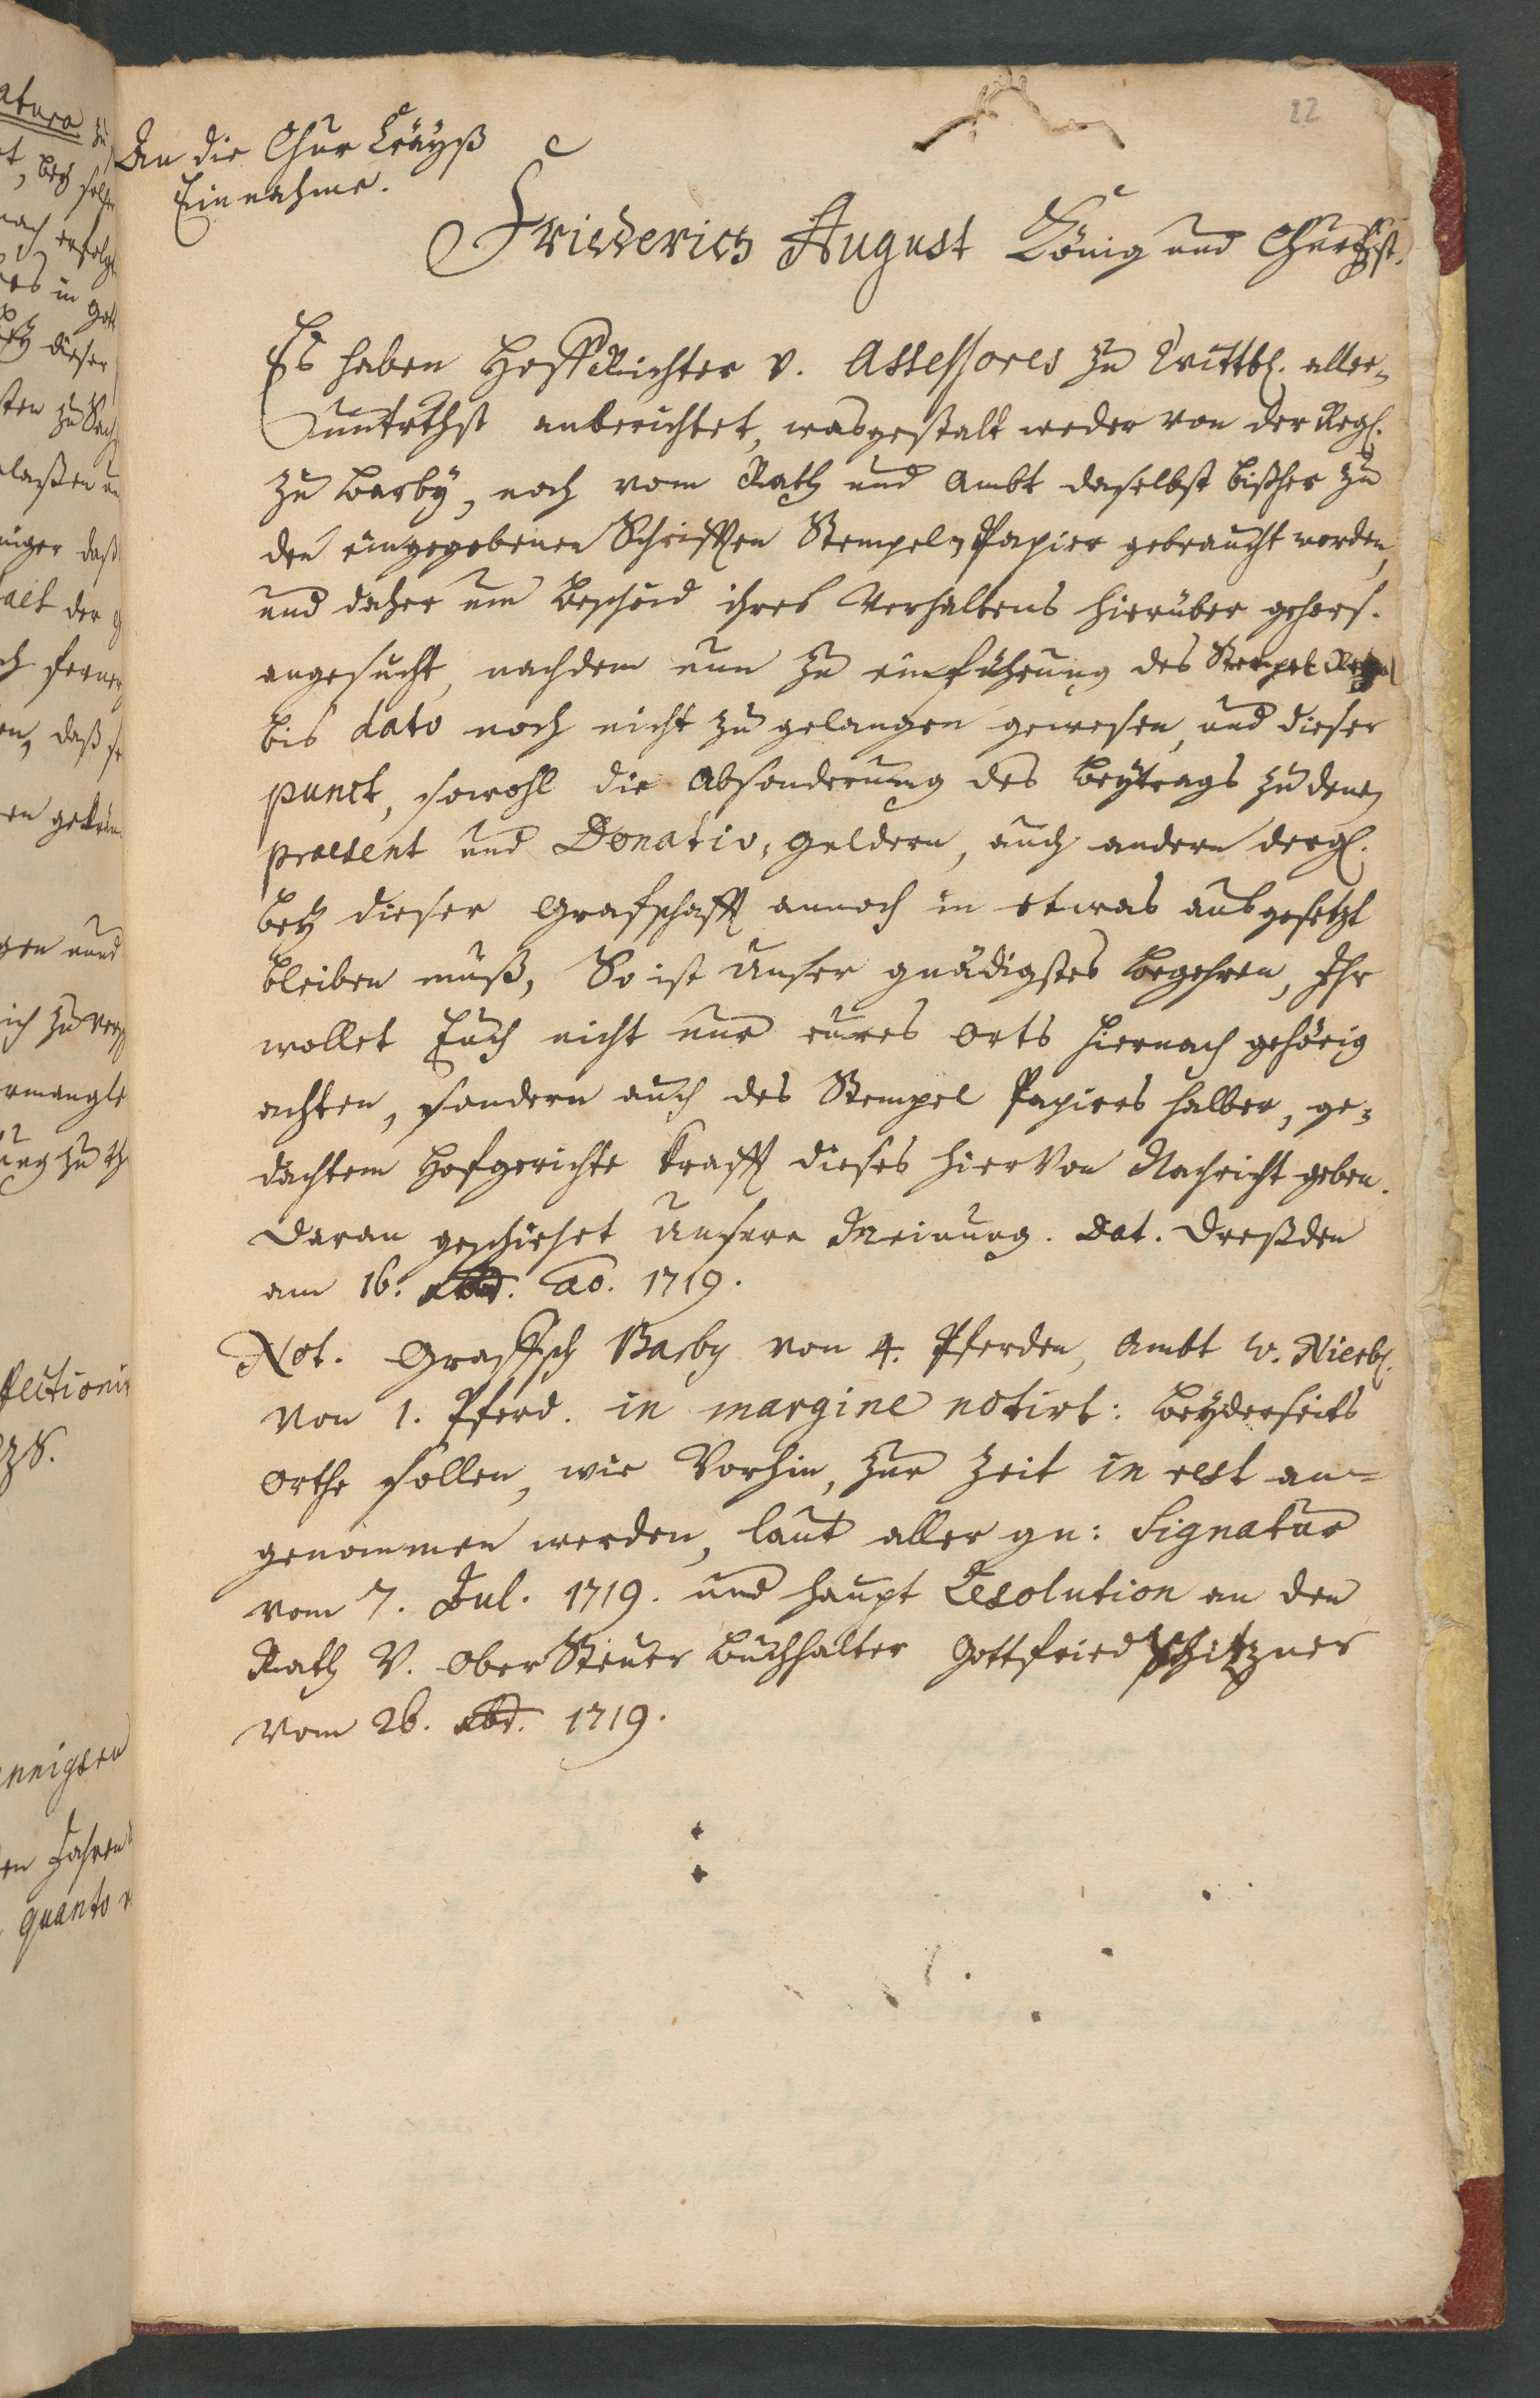 22
An die Chur Cräyß
Einnahme.
Friederich August König und Churfürst.
Es haben Hoff Richter v. Assessores zu Wittb. aller-
unterthst anberichtet, wasgestalt weder von der Reg.
zu Barby, noch vom Rath und Ambt daselbst bißher zu
den eingegebenen Schrifften Stempel-Papier gebraucht worden,
und daher um Bescheid ihres Verhaltens hierüber gehors.
angesucht, nachdem nun zu einführung des Stempel
bis dato noch nicht zu gelangen gewesen, und dieser
punct, sowohl die Absonderung des Beytrags zu denen
praesent und Donativ-Geldern, auch andern dergl.
bey dieser Grafschafft annoch in etwas ausgesetzt
bleiben muß, So ist Unser gnädigstes Begehren, Ihr
wollet Euch nicht nur eures Orts hiernach gehörig
achten, sondern auch des Stempel Papiers halber, ge-
dachtem Hofgerichte krafft dieses hiervon Nachricht geben.
Daran geschiehet Unsere Meinung. Dat. Dreßden
am 16. ao. 1719.
Not. Graffsch Barby von 4. Pferden, Ambt W.
von 1. Pferd. in margine notirt: beyderseits
Orthe sollen, wie Vorhin, zur Zeit in rest an-
genommen werden, laut aller gn: Signatur
vom 7. Jul. 1719. und haupt Resolution an den
Rath V. Ober Steuer Buchhalter Gottfried
vom 26. 1719.